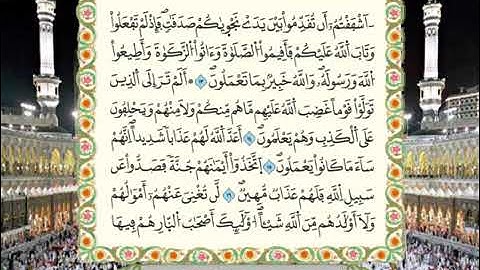 ءَآشْفَقْتُمُۥٓ أَن تُقَدِّمُواْ بَيْنَ يَدَےْ نَجْوَيٰكُمْ صَدَقَٰتٖۖ فَإِذْ لَمْ تَفْعَلُواْ
وَتَابَ اَ۬للَّهُ عَلَيْكُمْ فَأَقِيمُواْ اُ۬لصَّلَوٰةَ وَءَاتُواْ اُ۬لزَّكَوٰةَ وَأَطِيعُواْ
اُ۬للَّهَ وَرَسُولَهُۥۖ وَاللَّهُ خَبِيرُۢ بِمَا تَعْمَلُونَۖ ١٣ ۞ أَلَمْ تَرَ إِلَى اَ۬لذِينَ
تَوَلَّوْاْ قَوْماً غَضِبَ اَ۬للَّهُ عَلَيْهِم مَّا هُم مِّنكُمْ وَلَا مِنْهُمْ وَيَحْلِفُونَ
عَلَى اَ۬لْكَذِبِ وَهُمْ يَعْلَمُونَۖ ١٤ أَعَدَّ اَ۬للَّهُ لَهُمْ عَذَاباٗ شَدِيداًۖ اِنَّهُمْ
سَآءَ مَا كَانُواْ يَعْمَلُونَۖ ١٥ اَ۪تَّخَذُوٓاْ أَيْمَٰنَهُمْ جُنَّةٗ فَصَدُّواْ عَن
سَبِيلِ اِ۬للَّهِ فَلَهُمْ عَذَابٞ مُّهِينٞۖ ١٦ لَّن تُغْنِيَ عَنْهُمُۥٓ أَمْوَٰلُهُمْ
وَلَآ أَوْلَٰدُهُم مِّنَ اَ۬للَّهِ شَيْـٔاًۖ ا۟وْلَٰٓئِكَ أَصْحَٰبُ اُ۬لنّ۪ارِ هُمْ فِيهَا